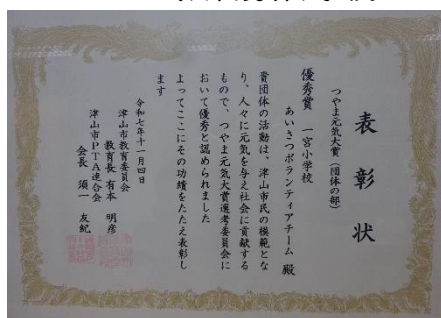 表彰状
つやま元気大賞(団体の部)
優秀賞 一宮小学校
あいさつボランティアチーム 殿
貴団体の活動は、津山市民の模範とな
り、人々に元気を与え社会に貢献する
もので、つやま元気大賞選考委員会に
おいて優秀と認められました
よってここにその功績をたたえ表彰し
ます
令和七年十一月四日
津山市教育委員会
教育長 有本 明彦
津山市PTA連合会
会長 須一 友紀